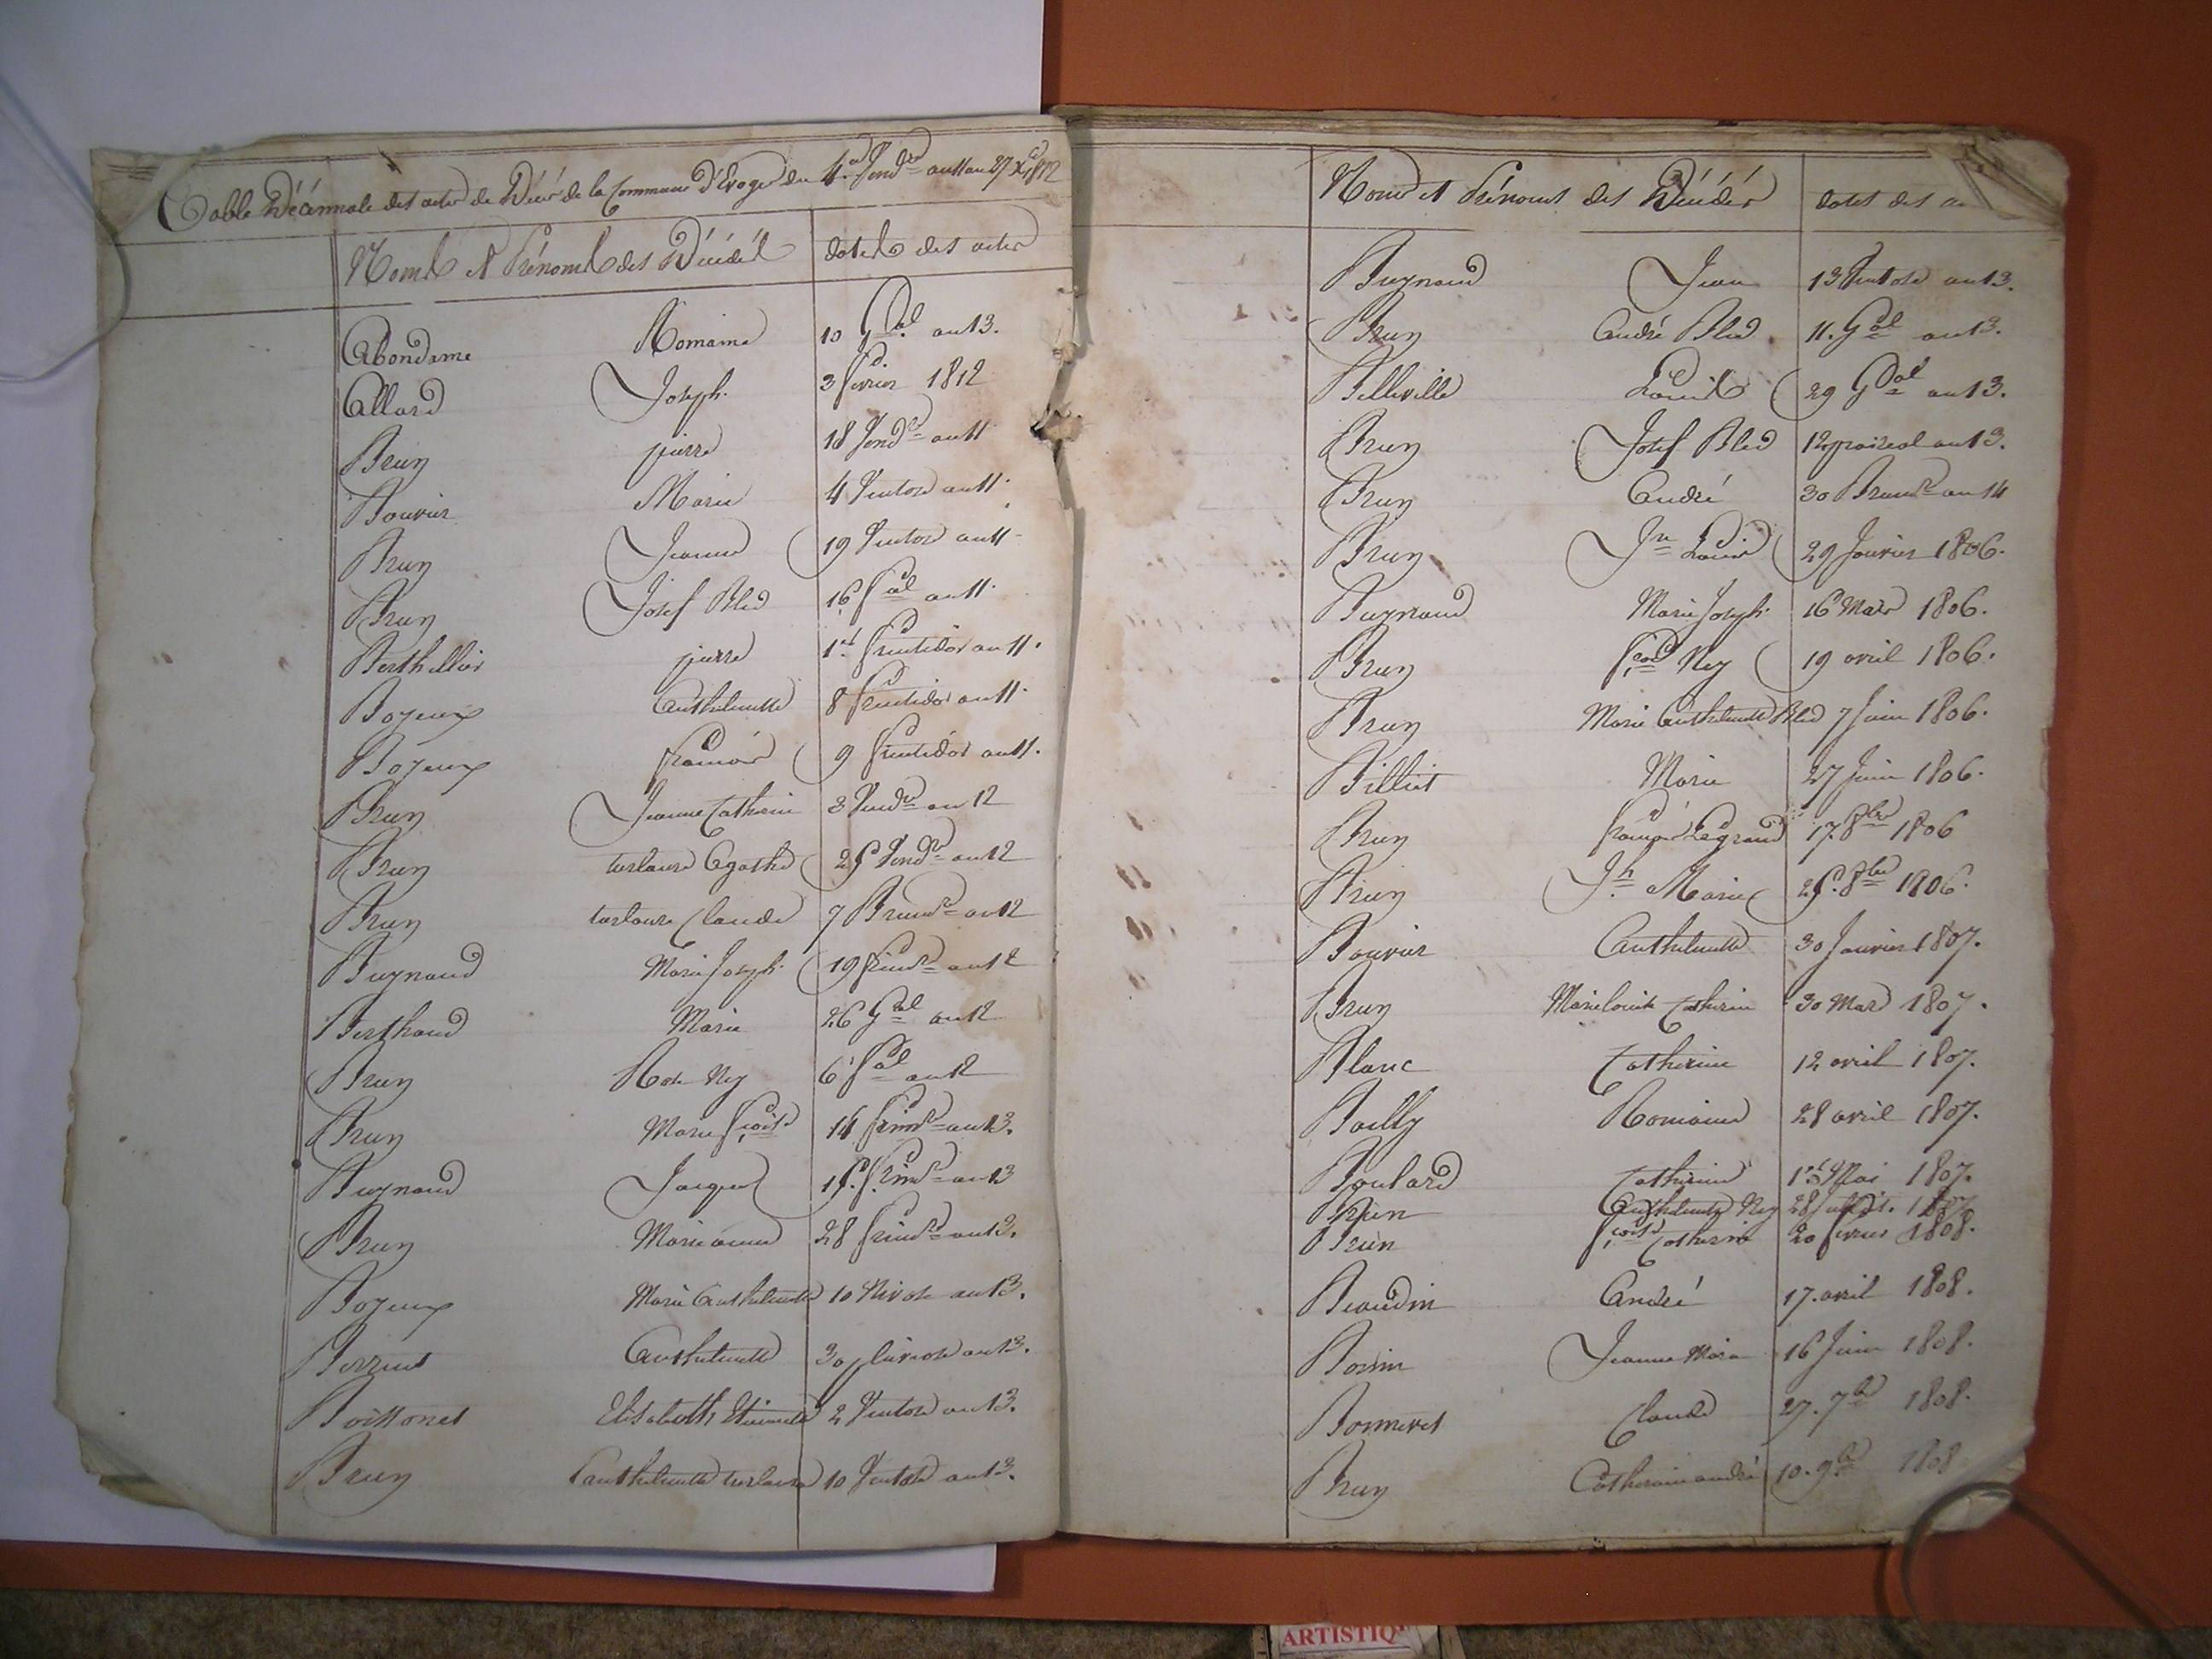 Table Décennale des actes de Décès de la Commune d'Evoges du 4 Vend.re an 11 au 1812
Noms et Prénoms des Décédés dates des actes
Abondame Romaine 10 G.al an 13.
Allard Joseph. 3 février 1812
Brun pierre 18 Vend.re an 11
Bouvier Marie 4 Ventose an 11.
Brun Jeanne 19 Ventose an 11
Brun Josef Bled 16 f.al an 11.
Berthellier pierre 1.er fructidor an 11.
Bozeux Anthelmette 8 fructidor an 11.
Bozeux françois 9 fructidor an 11.
Brun Jeanne Catherine 3 Vend.re an 12
Brun turlaure Agathe 25 Vend.re an 12
Brun turlaure Claude 7 Brum.re an 12
Buynand Marie Joseph. 19 frim.re an 12
Berthaud Marie 26 G.al an 12
Brun Rose Ney 6 f.al an 12
Brun Marie f.çoise 14 frim.re an 13.
Buynand Jacques 15 frim.re an 13
Brun Marie anne 28 frim.re an 13.
Bozeux Marie Anthelmette 10 Nivose an 13.
Anthelmette 30 pluviose an 13.
Boissonet Elisabeth Etiennette 2 Ventose an 13.
Brun Anthelmette turlaure 10 Ventose an 13.
Noms et Prénoms des Décédés dates des
Buynand Jean 13 Ventose an 13.
Brun André Bled 11. G.al an 13.
Belleville Louis 29 G.al an 13.
Brun Josef Bled 12 prairial an 13.
Brun André 30 Brum.re an 14
Brun J.n Louis 29 Janvier 1806.
Buynand Marie Joseph. 16 Mars 1806.
Brun f.çois Ney 19 avril 1806.
Brun Marie Anthelmette Bled 7 Juin 1806.
Billiet Marie 27 Juin 1806.
Brun françois Legrand 17. 8.bre 1806
Brun J.h Marie 25. 8.bre 1806.
Bouvier Anthelmette 30 Janvier 1807.
Brun Marie louise Catherine 30 Mars 1807.
Blanc Catherine 12 avril 1807.
Bailly Romaine 28 avril 1807.
Boulard Catherine 1.er Mai 1807.
Brun Anthelmette Ney 28 Juillet. 1807
Brun f.çoise Catherine 20 février 1808.
Beaudin André 17. avril 1808.
Jeanne Marie 16 Juin 1808.
Bonneret Claude 27. 7.bre 1808.
Brun Catherine andré 10. 9.bre 1808
ARTISTIQ